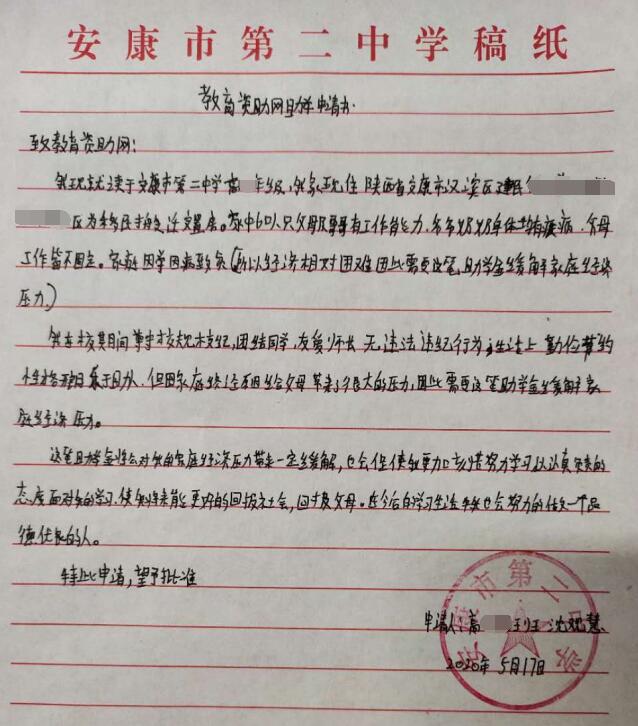 安康市第二中学稿纸
教育资助网助学申请书.
致教育资助网:
我现就读于安康市第二中学高 年级,我家现住陕西省安康市汉滨区建民
区为移民搬迁安置房。家中6口人只父母及哥哥有工作能力,爷爷奶奶身体均有疾病.父母
工作皆不固定。家庭因学因病致贫(所以经济相对困难因此需要这笔助学金缓解家庭经济
压力.)
我在校其间遵守校规校纪,团结同学,友爱师长 无违法违纪行为,生活上勤俭节约
性格开朗乐于助人,但因家庭经济原因给父母带来了很大的压力,因此需要这笔助学金缓解家
庭经济压力。
这笔助学金将会对我的家庭经济压力带来一定缓解,也会促使我更加珍惜努力学习以认真负责的
态度面对我的学习.使我将来能更好的回报社会,回报父母。在今后的学习生活中我也会努力的做一个品
德优良的人。
特此申请,望予批准
申请人:高 班
2020年5月17日
安康市第二中学